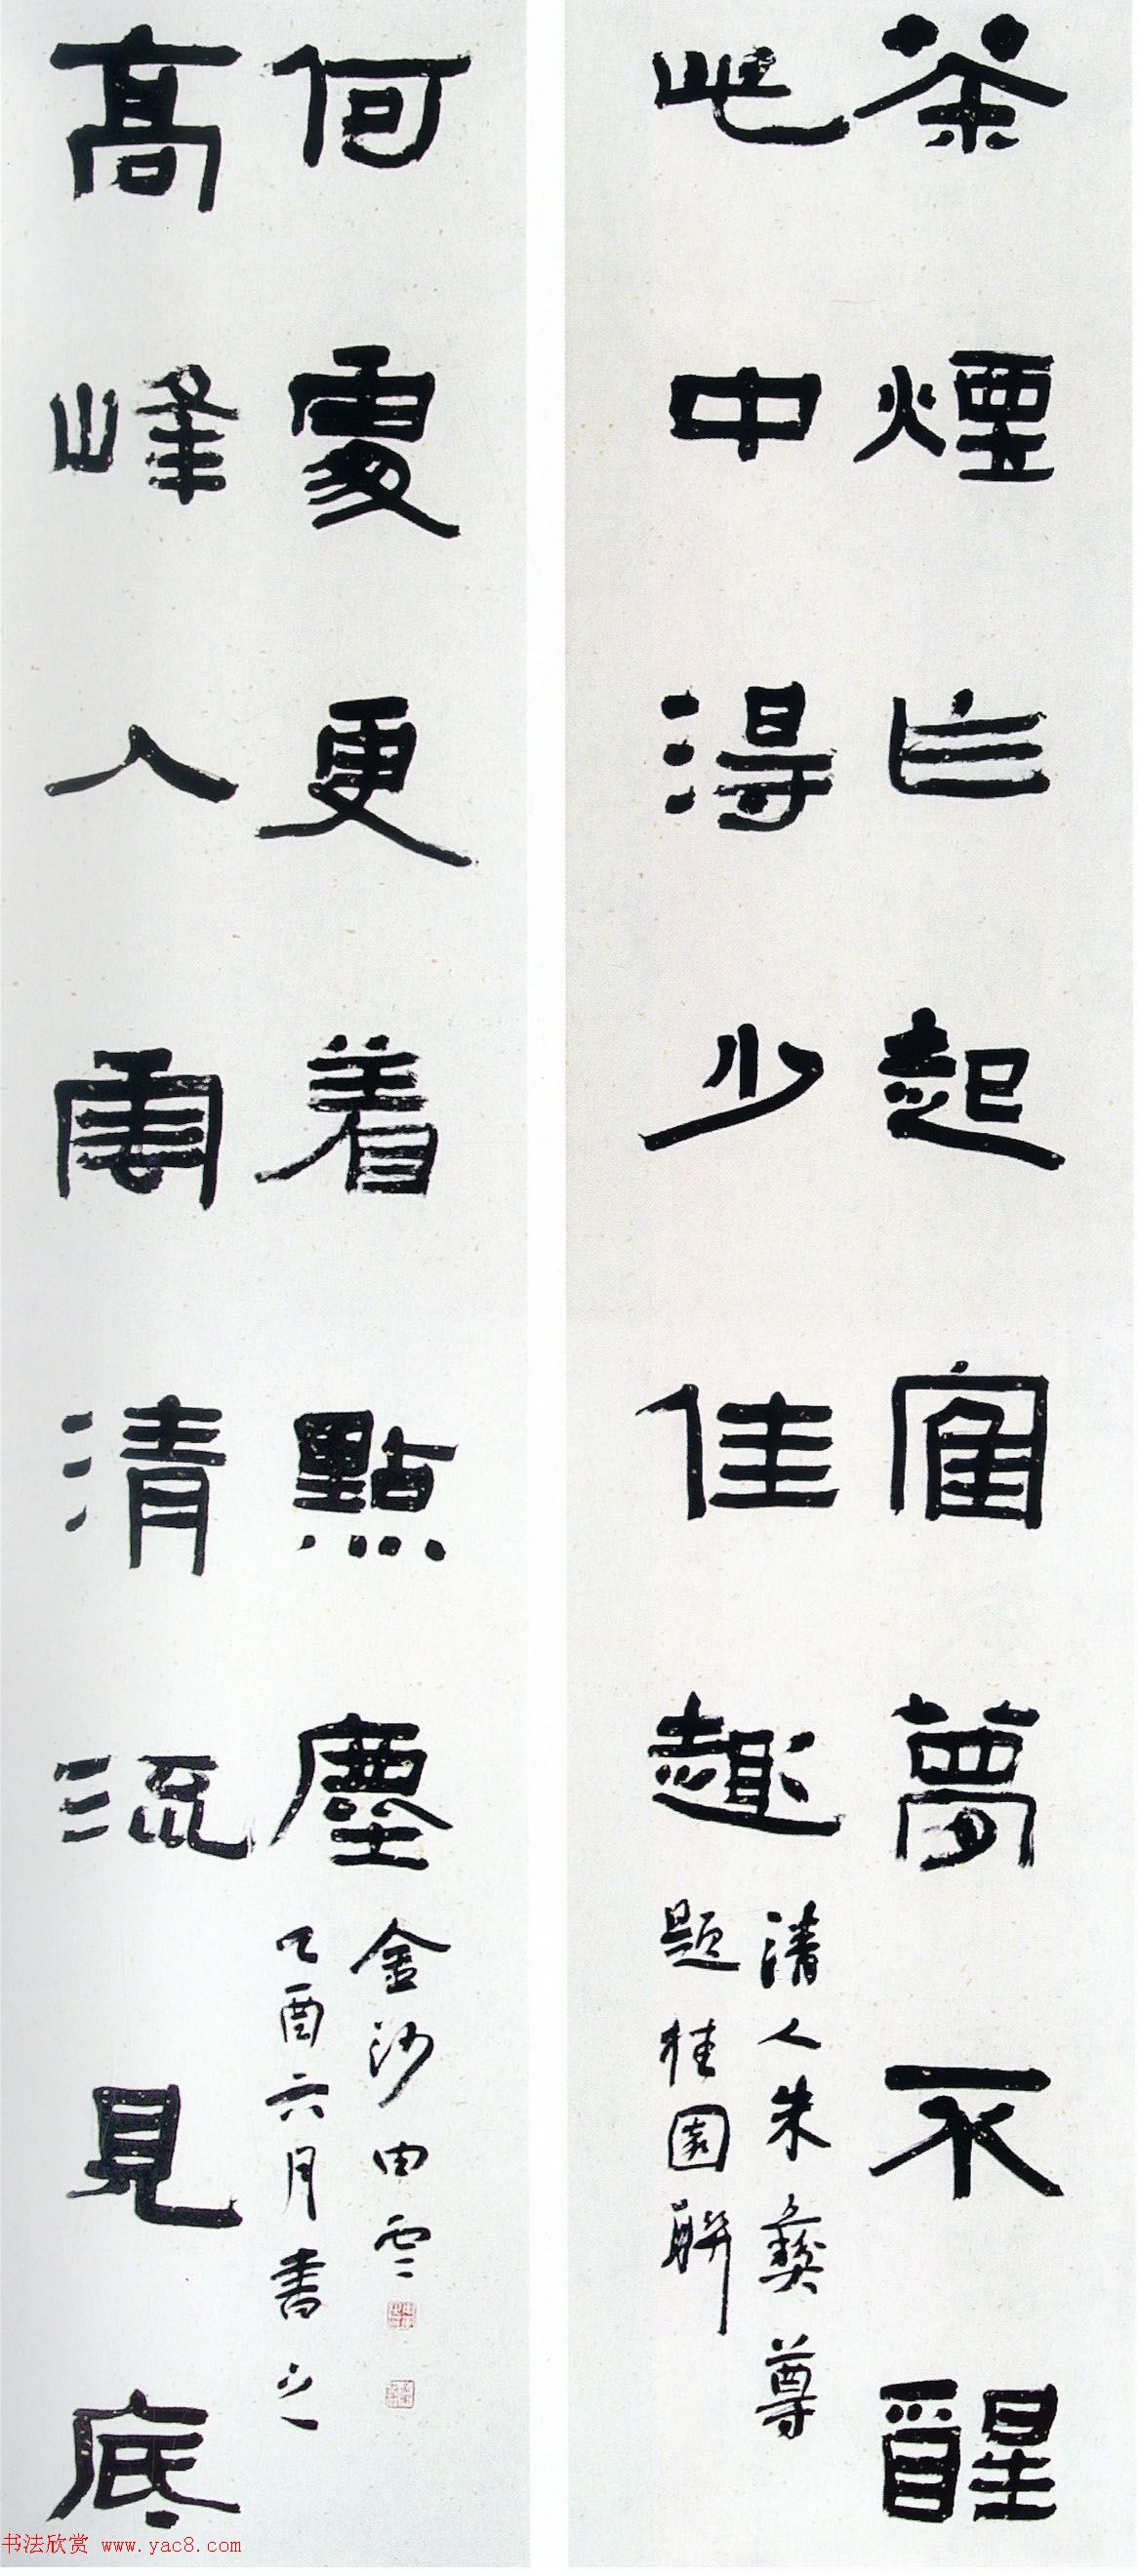 茶煙乍起寉夢不醒
此中得少佳趣
清人朱彝尊
題桂園聯
高峰入雲清流見底
何處更着點塵
金沙雲
乙酉六月書之
书法欣赏 www.yac8.com